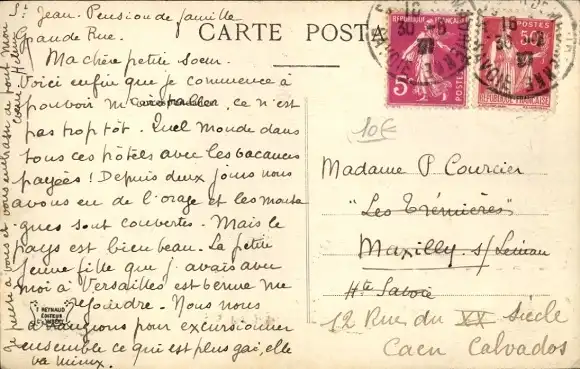 CARTE POSTALE
St Jean. Pension de famille
Grande Rue.
Ma chère petite soeur.
Voici enfin que je commence à
pouvoir m'installer, ce n'est
pas trop tôt. Quel monde dans
tous ces hôtels avec les vacances
payées! Depuis deux jours nous
avons eu de l'orage et les monta
gnes sont couvertes. Mais le
pays est bien beau. La petite
jeune fille que j'avais avec
moi à Versailles est venue me
rejoindre. Nous nous
arrangeons pour excursionner
ensemble ce qui est plus gai, elle
va mieux.
Je pense à vous et vous embrasse de tout mon
coeur Hélène
REPUBLIQUE FRANÇAISE
5c
POSTES
POSTES
50c
REPUBLIQUE FRANÇAISE
16
30
37
16
30
37
10€
Madame P. Courcier
"Les Trémières"
Maxilly s/ Léman
Hte Savoie
12 Rue du XX Siècle
Caen Calvados
REYNAUD
EDITEUR